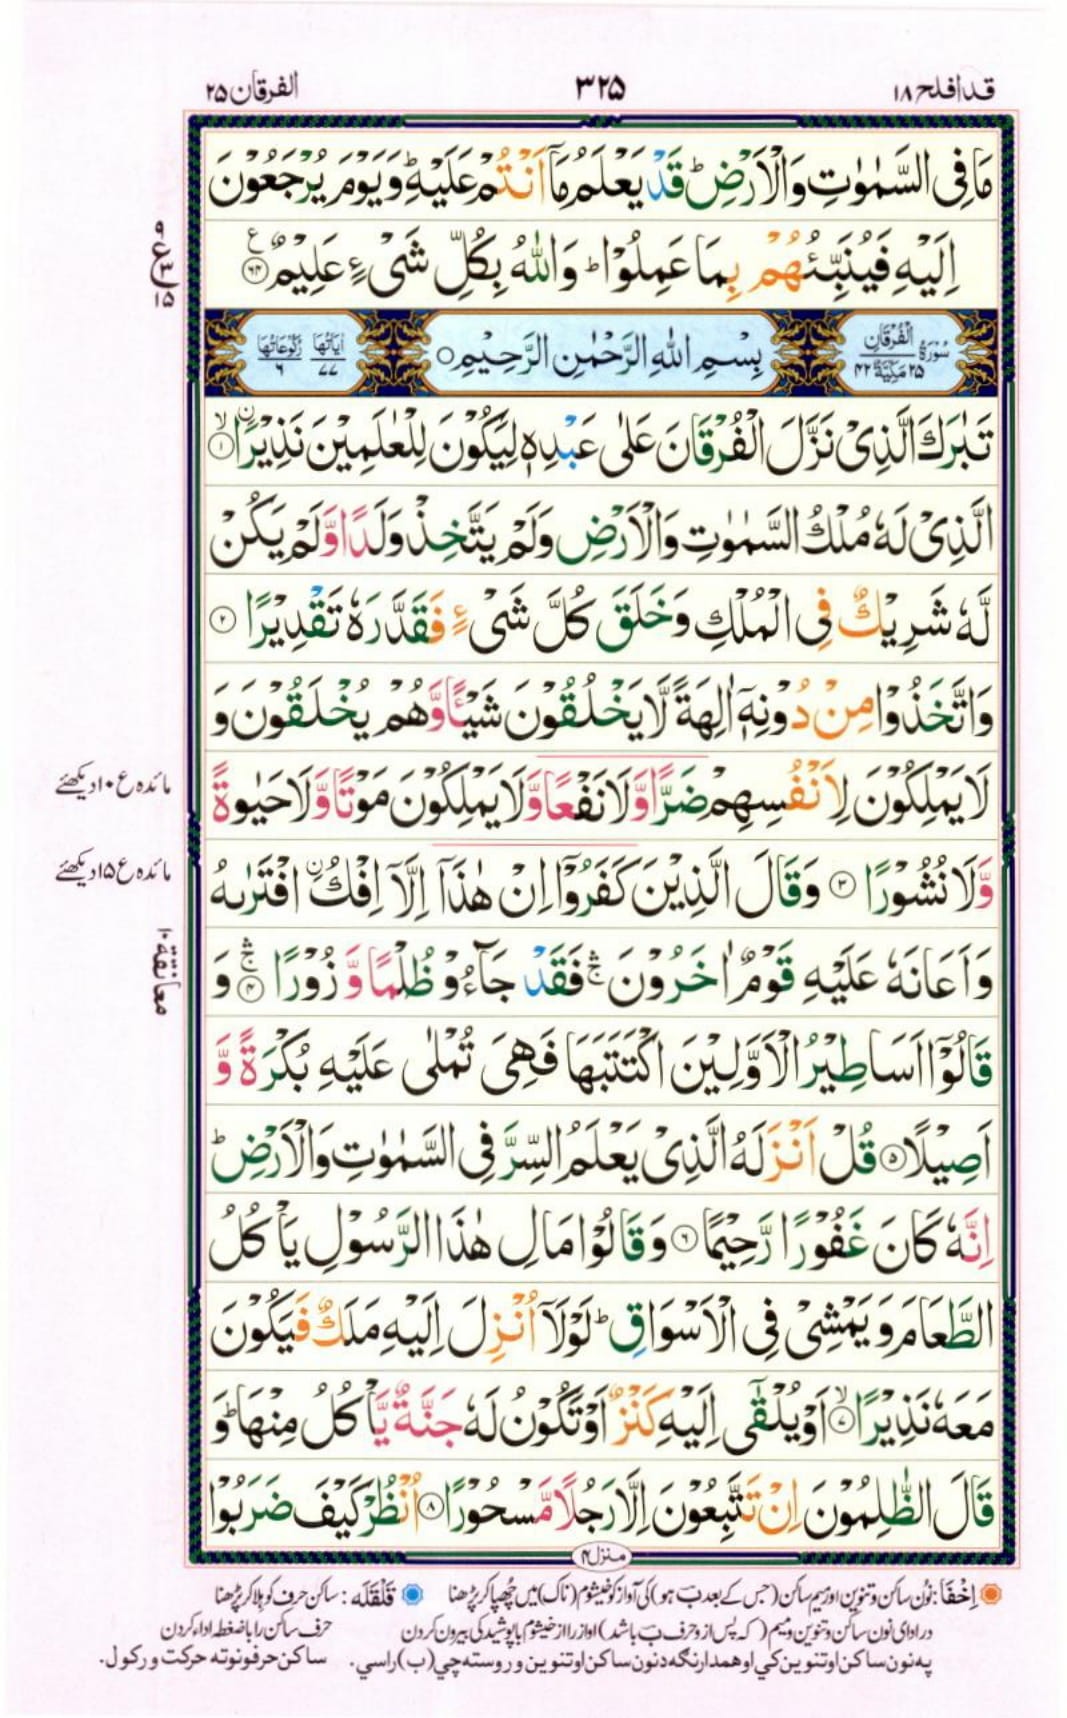 قد افلح ۱۸
۳۲۵
الفرقان ۲۵
مَا فِى السَّمٰوٰتِ وَالْاَرْضِ ؕ قَدْ يَعْلَمُ مَاۤ اَنْتُمْ عَلَيْهِ ؕ وَيَوْمَ يُرْجَعُوْنَ
اِلَيْهِ فَيُنَبِّئُهُمْ بِمَا عَمِلُوْا ؕ وَاللّٰهُ بِكُلِّ شَىْءٍ عَلِيْمٌ ۶۴ ع
سُوْرَةُ الْفُرْقَانِ مَكِّيَّةٌ ۲۵ ۴۲
بِسْمِ اللّٰهِ الرَّحْمٰنِ الرَّحِيْمِ
اٰيَاتُهَا ۷۷ رُكُوْعَاتُهَا ۶
تَبٰرَكَ الَّذِىْ نَزَّلَ الْفُرْقَانَ عَلٰى عَبْدِهٖ لِيَكُوْنَ لِلْعٰلَمِيْنَ نَذِيْرًا ۙ ۱
الَّذِىْ لَهٗ مُلْكُ السَّمٰوٰتِ وَالْاَرْضِ وَلَمْ يَتَّخِذْ وَلَدًا وَّلَمْ يَكُنْ
لَّهٗ شَرِيْكٌ فِى الْمُلْكِ وَخَلَقَ كُلَّ شَىْءٍ فَقَدَّرَهٗ تَقْدِيْرًا ۲
وَاتَّخَذُوْا مِنْ دُوْنِهٖۤ اٰلِهَةً لَّا يَخْلُقُوْنَ شَيْـًٔا وَّهُمْ يُخْلَقُوْنَ وَ
لَا يَمْلِكُوْنَ لِاَنْفُسِهِمْ ضَرًّا وَّلَا نَفْعًا وَّلَا يَمْلِكُوْنَ مَوْتًا وَّلَا حَيٰوةً
مائدہ ع ۱۰ دیکھئے
وَّلَا نُشُوْرًا ۳ وَقَالَ الَّذِيْنَ كَفَرُوْۤا اِنْ هٰذَاۤ اِلَّاۤ اِفْكُ ۨافْتَرٰىهُ
مائدہ ع ۱۵ دیکھئے
وَاَعَانَهٗ عَلَيْهِ قَوْمٌ اٰخَرُوْنَ ۛۚ فَقَدْ جَآءُوْ ظُلْمًا وَّ زُوْرًا ۛۚ ۴ وَ
معانقة ۱۰
قَالُوْۤا اَسَاطِيْرُ الْاَوَّلِيْنَ اكْتَتَبَهَا فَهِىَ تُمْلٰى عَلَيْهِ بُكْرَةً وَّ
اَصِيْلًا ۵ قُلْ اَنْزَلَهُ الَّذِىْ يَعْلَمُ السِّرَّ فِى السَّمٰوٰتِ وَالْاَرْضِ ؕ
اِنَّهٗ كَانَ غَفُوْرًا رَّحِيْمًا ۶ وَقَالُوْا مَالِ هٰذَا الرَّسُوْلِ يَاْكُلُ
الطَّعَامَ وَيَمْشِىْ فِى الْاَسْوَاقِ ؕ لَوْلَاۤ اُنْزِلَ اِلَيْهِ مَلَكٌ فَيَكُوْنَ
مَعَهٗ نَذِيْرًا ۙ ۷ اَوْ يُلْقٰٓى اِلَيْهِ كَنْزٌ اَوْ تَكُوْنُ لَهٗ جَنَّةٌ يَّاْكُلُ مِنْهَا ؕ وَ
قَالَ الظّٰلِمُوْنَ اِنْ تَتَّبِعُوْنَ اِلَّا رَجُلًا مَّسْحُوْرًا ۸ اُنْظُرْ كَيْفَ ضَرَبُوْا
منزل ۴
اِخْفَا: نون ساکن و تنوین اور میم ساکن (جس کے بعد ب ہو) کی آواز کو خیشوم (ناک) میں چُھپا کر پڑھنا قَلْقَلَه: ساکن حرف کو ہلا کر پڑھنا
در ادای نون ساکن و تنوین و میم (که پس از و حرف ب باشد) آواز را از خیشوم با پوشیدگی بیرون کردن حرف ساکن را با ضغطه ادا کردن
په نون ساکن او تنوین کي او همدارنګه د نون ساکن او تنوین وروسته چي (ب) راسي. ساکن حرفو نو ته حرکت ورکول.